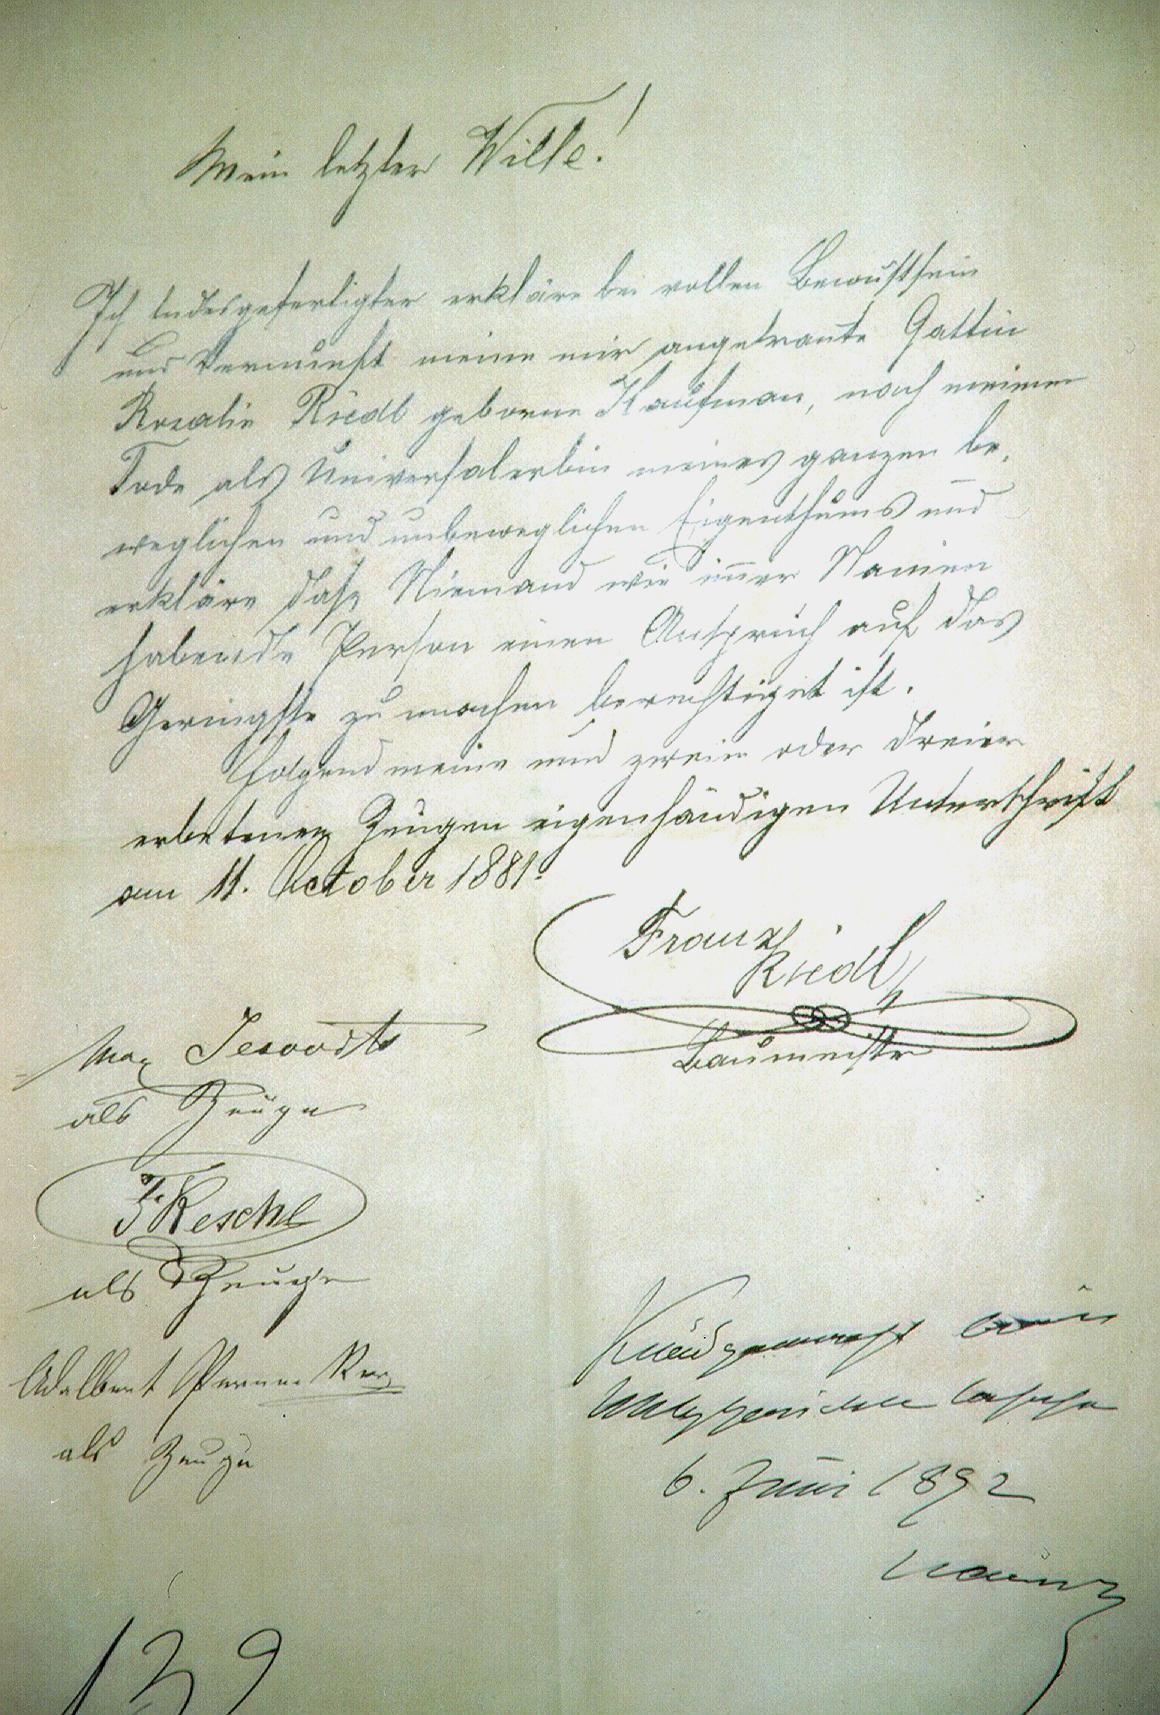 Mein letzter Wille!
Ich Endesgefertigter erkläre bei vollen Bewustsein
und Vernunft meine mir angetraute Gattin
Rosalie Riedl geborne Kaufman, nach meinem
Tode als Universalerbin meines ganzen be-
weglichen und unbeweglichen Eigenthums und
erkläre daß Niemand wie im̅er Namen
habende Person einen Anspruch auf das
Geringste zu machen berechtiget ist.
Folgend meine und zweier oder dreier
erbetener Zeugen eigenhändigen Unterschrift
am 11. October 1881.
Franz
Riedl
Baumeister
Max
als Zeuge
F. Reschl
als Zeuge
Adalbert
als Zeuge
Kundgemacht beim
6. Juni 1892
139